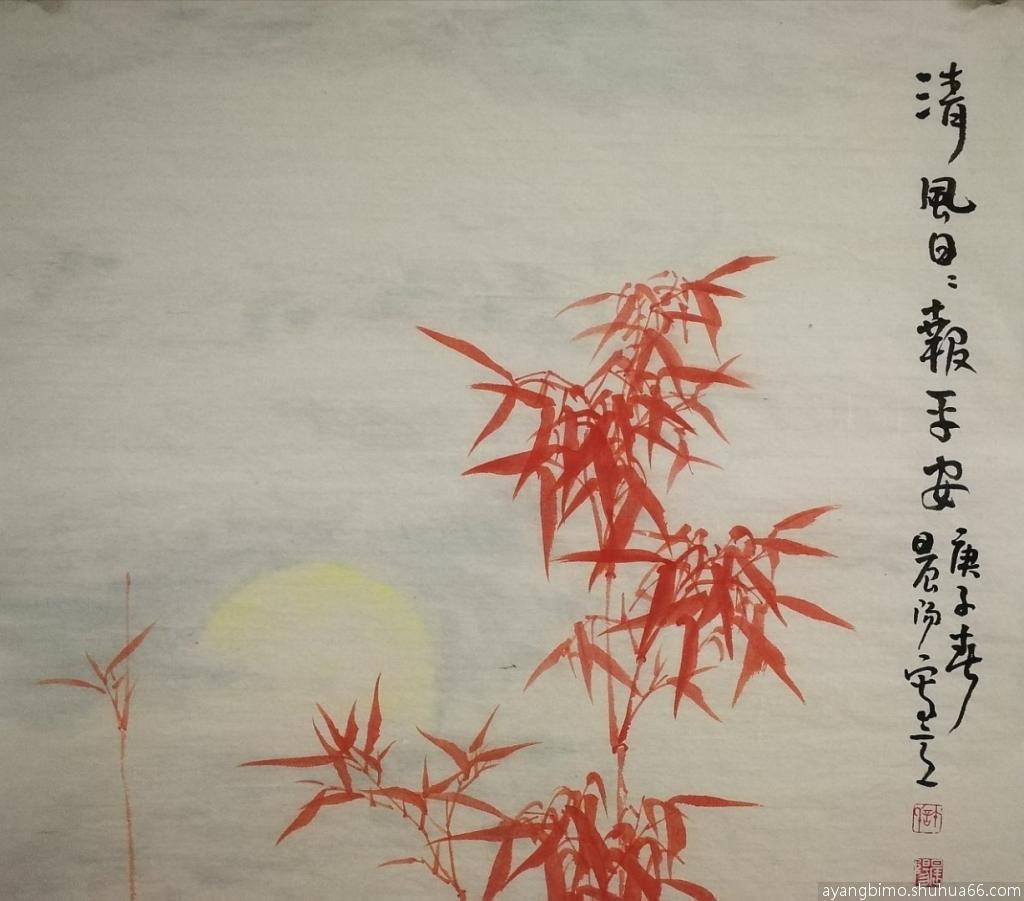 清風日〻報平安
庚子春
晨陽寫意
ayangbimo.shuhua66.com